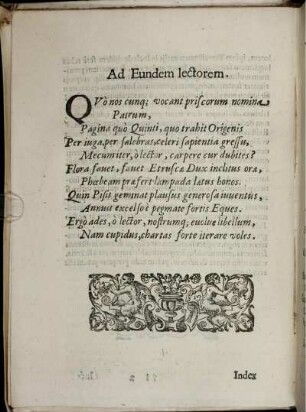 Ad Eundem lectorem.
QVò nos cunq; vocant priscorum nomina
Patrum,
Pagina quò Quinti, quo trahit Origenis
Per iuga, per salebras celeri sapientia gressu,
Mecum iter, ò lector, carpere cur dubites?
Flora fauet, fauet Etrusca Dux inclitus ora,
Phœbeam præfert lampada latus honos.
Quin Pisis geminat plausus generosa iuuentus,
Annuit excelso è pegmate fortis Eques.
Ergò ades, ò lector, nostrumq; euolue libellum,
Nam cupidus, chartas forte iterare voles.
Index